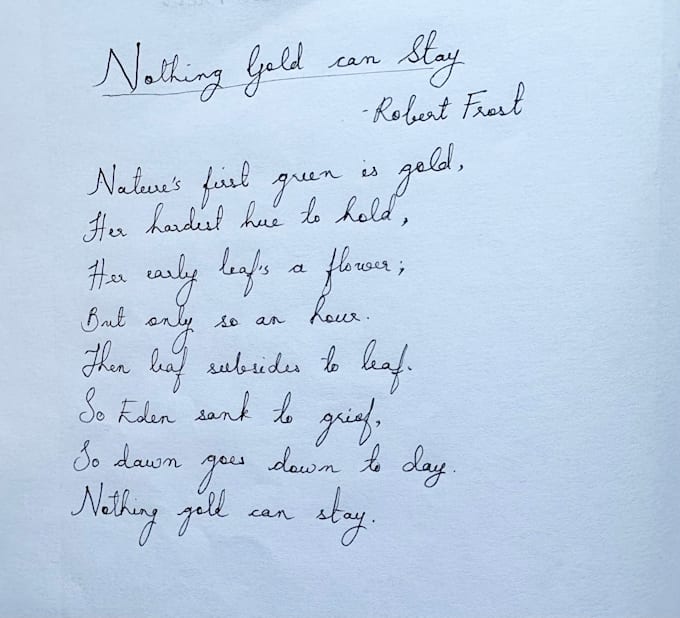 Nothing Gold can Stay
-Robert Frost
Nature's first green is gold,
Her hardest hue to hold,
Her early leaf's a flower;
But only so an hour.
Then leaf subsides to leaf.
So Eden sank to grief,
So dawn goes down to day.
Nothing gold can stay.